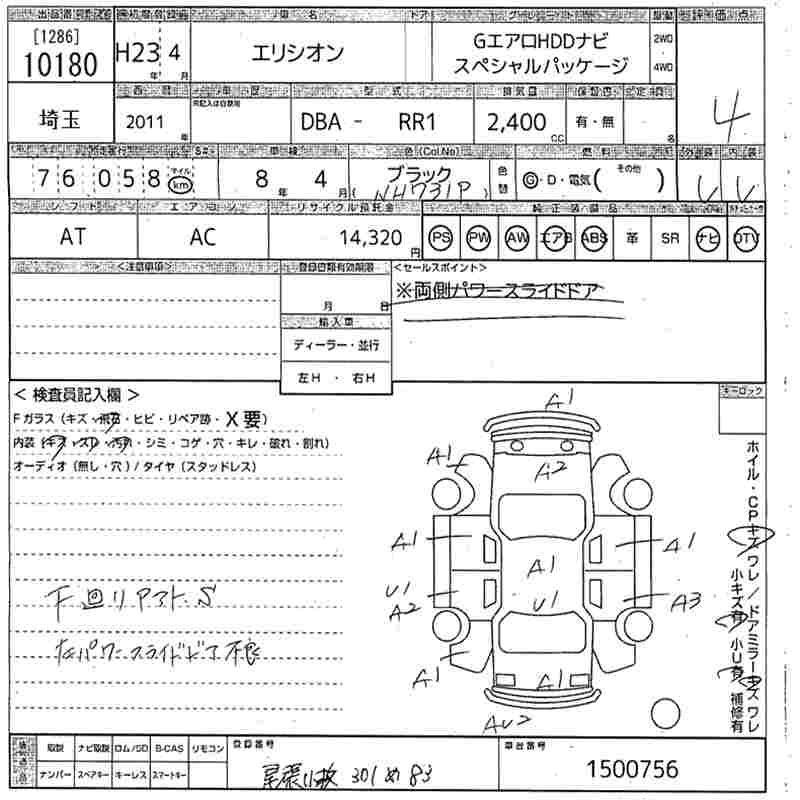 出品番号 初年度登録 車名 ドア グレード 駆動 評価点
[1286]
10180 H23 年 4 月 エリシオン GエアロHDDナビ スペシャルパッケージ 2WD ・ 4WD 4
西暦 車歴 型式 排気量 保証書 定員
埼玉 2011 年 未記入は自家用 DBA - RR1 2,400 CC 有・無 名
走行 車検 色(Col.No) 燃料 外装 内装
76058 マイル km 8 年 4 月 ブラック (NH731P) 色替 G・D・電気( その他 )
シフト エアコン リサイクル預託金 純正装備品
AT AC 14,320 円 PS PW AW エアB ABS 革 SR ナビ DTV
<注意事項> 登録書類有効期限 <セールスポイント>
月 日 ※両側パワースライドドア
輸入車
ディーラー・並行
左H ・ 右H
< 検査員記入欄 > キーロック
Fガラス(キズ・飛石・ヒビ・リペア跡・X要)
内装(キズ・スレ・汚れ・シミ・コゲ・穴・キレ・破れ・割れ)
オーディオ(無し・穴)/タイヤ(スタッドレス)
A1
A1 A2
A1 A1 A1
U1 U1
A2 A3
A1 A1
AU2
下回リアマト、S
左パワースライドドア不良
ホイル・CPキズワレ/ドアミラーキズワレ
小キズ有 小U有 補修有
取説 ナビ取説 ロム/SD B-CAS リモコン 登録番号 車台番号
ナンバー スペアキー キーレス スマートキー 尾張小牧 301 め 83 1500756